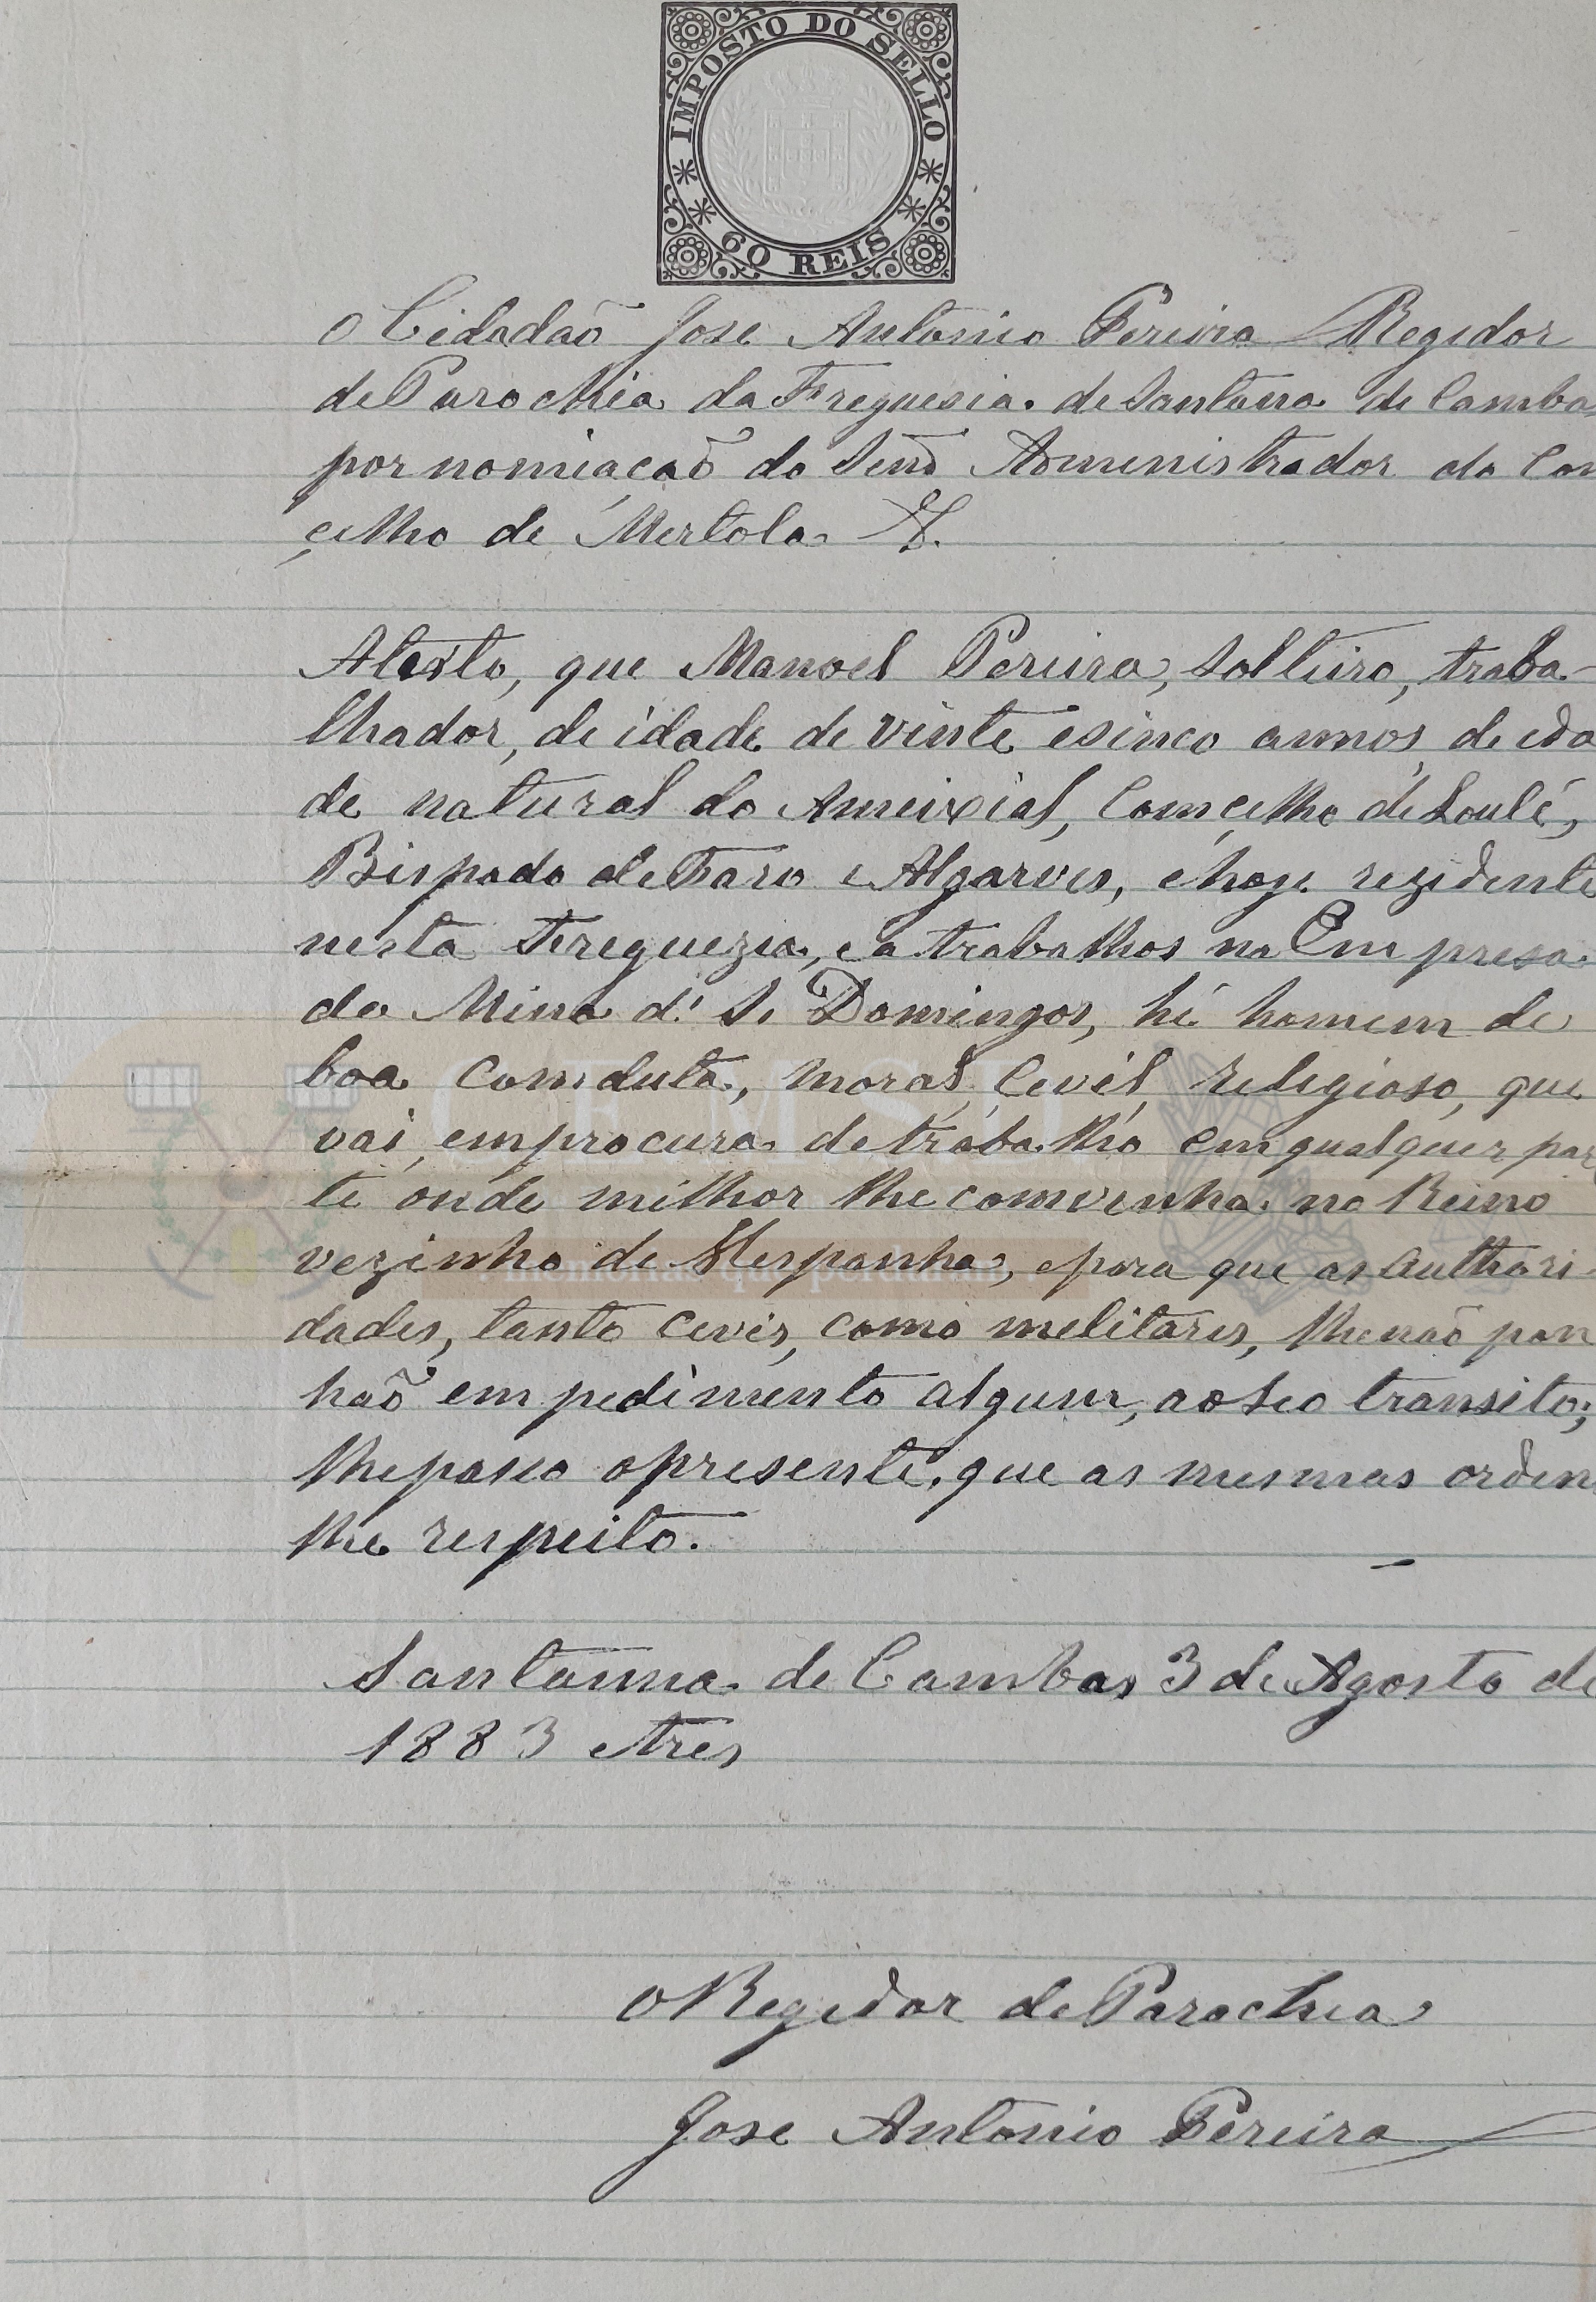 IMPOSTO DO SELLO
60 REIS
O Cidadaõ Jose Antonio Pereira Regedor
de Parochia da Freguesia de Santana de Camba
por nomiacaõ do Senr Administrador do Con
çelho de Mertola &.
Atesto, que Manoel Pereira, Solteiro, traba-
lhador, de idade de vinte esinco annos, de eda
de natural do Ameixial, Comçelho de Loulé,
Bispado de Faro e Algarves, ehoge rezidente
nesta Fereguezia, e a trabalhos na Empresa
da Mina d' S. Domingos, hé homem de
boa Comduta, moral, Cevél, religioso, que
vai, emprocura de trabalho em qualquer par
te onde milhor lhe comvenha no Reino
vezinho de Hespanha, epara que as Authori-
dades, tanto Cevis, como melitares, lhenaõ pon
haõ empedimento algum, ao seo transito;
lhepaseo opresente, que as mesmas orden
lhe respeito.
Santanna de Cambas 3 de Agosto de
1883 etres
O Regedor de Parochia
Jose Antonio Pereira